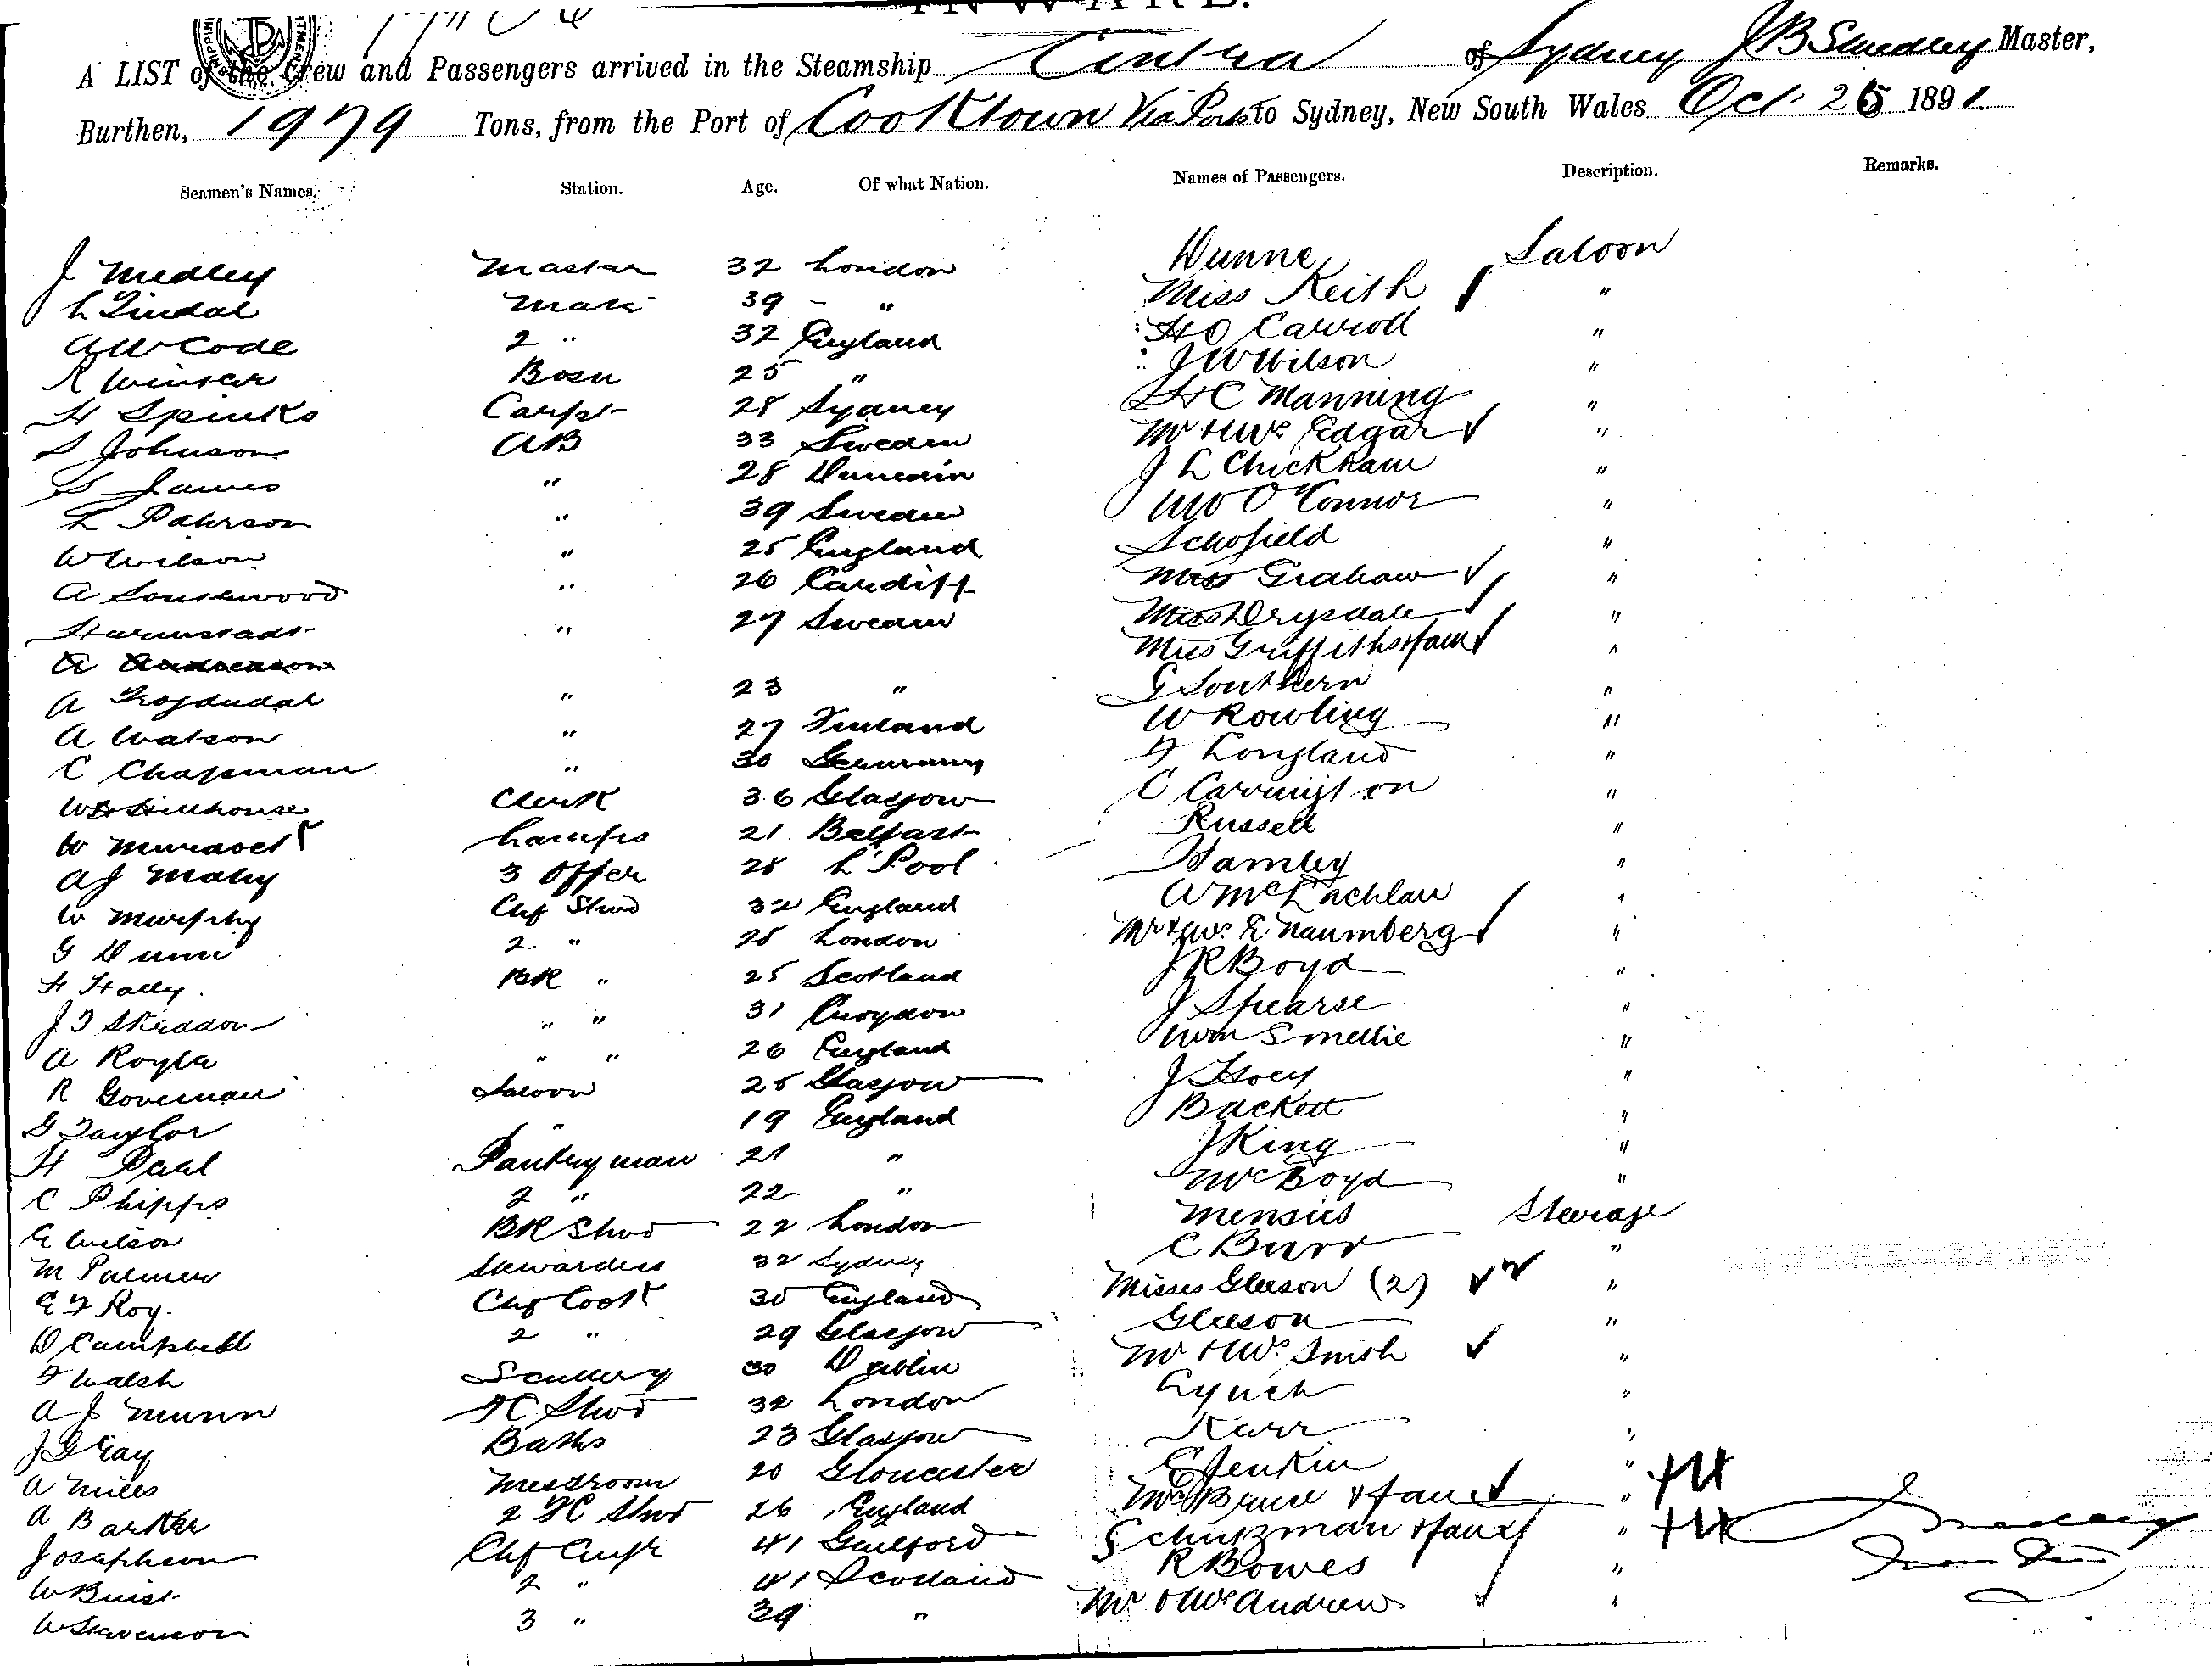 INWARD.
A LIST of the Crew and Passengers arrived in the Steamship Cintra of Sydney J B Smedley Master,
Burthen, 1979 Tons, from the Port of Cooktown Via Ports to Sydney, New South Wales Oct 26 1891
Seamen's Names. Station. Age. Of what Nation. Names of Passengers. Description. Remarks.
J Medley Master 32 London Dunne Saloon
L Tindal Mate 39 - " Miss Keith "
A W Code 2 " 32 England H O Carroll "
R Winsar Bosn 25 " J W Wilson "
H Spinks Carpt 28 Sydney H C Manning "
S Johnson AB 33 Sweden Mr & Mrs Edgar "
G James " 28 Dunedin J L Chickham "
L Paterson " 39 Sweden W O'Connor "
W Wilson " 25 England Schofield "
A Southwood " 26 Cardiff Miss Graham "
Harmstadt " 27 Sweden Miss Drysdale "
A Andreason Miss Griffiths & fam "
A " 23 " G Southern "
A Watson " 27 Finland W Rowling "
C Chapman " 30 Germany F Longland "
W Hillhouse Clerk 36 Glasgow C Carrington "
W Murdock Lamps 21 Belfast Russell "
A J Mahy 3 Offer 28 L'Pool Hamley "
W Murphy Chf Stwd 32 England A McLachlan "
G Dunn 2 " 28 London Mr & Mrs E. Naumberg "
H Hally. BR " 25 Scotland J R Boyd "
J T Skeddon " " 31 Croydon J Spearse "
A Royle " " 26 England Wm Smellie "
R Govenan Saloon 25 Glasgow J Hoey "
G Taylor " 19 England Backett "
H Paul Pantryman 21 " J King "
C Phipps 2 " 22 " McBoyd "
E Wilson BR Stwd 22 London Mensies Steerage
M Palmer Stewardess 32 Sydney C Burr "
E F Roy. Chf Cook 30 England Misses Gleeson (2) "
D Campbell 2 " 29 Glasgow Gleeson "
F Walsh Scullery 30 Dublin Mr & Mrs Smith "
A J Munn FC Stwd 32 London Lynch "
J Gray Baths 23 Glasgow Karr "
A Miles Messroom 20 Gloucester E Jenkin "
A Barker 2 FC Stwd 26 England Mrs Bruce & fam "
Josephson Chf Engr 41 Guilford Schutzman & fam "
W Buist 2 " 41 Scotland R Bowes "
W Stevenson 3 " 39 " Mr & Mrs Andrew "